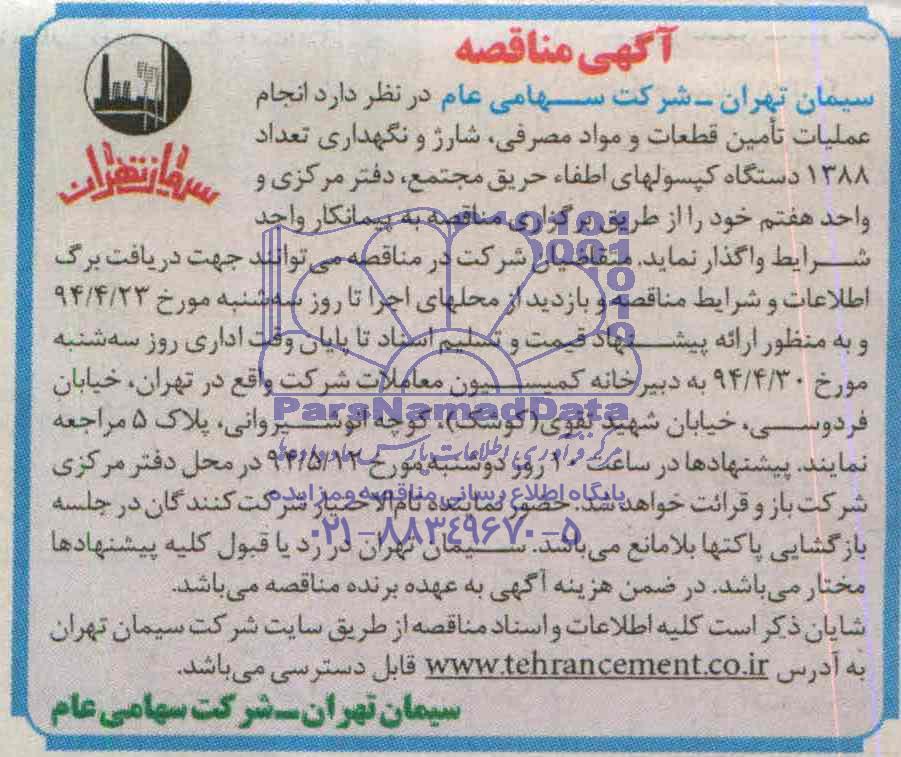 آگهی مناقصه
سیمان تهران
سیمان تهران ـ شرکت سهامی عام در نظر دارد انجام
عملیات تأمین قطعات و مواد مصرفی، شارژ و نگهداری تعداد
۱۳۸۸ دستگاه کپسولهای اطفاء حریق مجتمع، دفتر مرکزی و
واحد هفتم خود را از طریق برگزاری مناقصه به پیمانکار واجد
شرایط واگذار نماید. متقاضیان شرکت در مناقصه می‌توانند جهت دریافت برگ
اطلاعات و شرایط مناقصه و بازدید از محلهای اجرا تا روز سه‌شنبه مورخ ۹۴/۴/۲۳
و به منظور ارائه پیشنهاد قیمت و تسلیم اسناد تا پایان وقت اداری روز سه‌شنبه
مورخ ۹۴/۴/۳۰ به دبیرخانه کمیسیون معاملات شرکت واقع در تهران، خیابان
فردوسی، خیابان شهید تقوی(کوشک)، کوچه انوشیروانی، پلاک ۵ مراجعه
نمایند. پیشنهادها در ساعت ۱۰ روز دوشنبه مورخ ۹۴/۵/۱۲ در محل دفتر مرکزی
شرکت باز و قرائت خواهد شد. حضور نماینده تام‌الاختیار شرکت‌کنندگان در جلسه
بازگشایی پاکتها بلامانع می‌باشد. سیمان تهران در رد یا قبول کلیه پیشنهادها
مختار می‌باشد. در ضمن هزینه آگهی به عهده برنده مناقصه می‌باشد.
شایان ذکر است کلیه اطلاعات و اسناد مناقصه از طریق سایت شرکت سیمان تهران
به آدرس www.tehrancement.co.ir قابل دسترسی می‌باشد.
سیمان تهران ـ شرکت سهامی عام
ParsNamadData
مرکز فرآوری اطلاعات پارس نماد داده‌ها
پایگاه اطلاع رسانی مناقصه و مزایده
۰۲۱-۸۸۳۴۹۶۷۰-۵